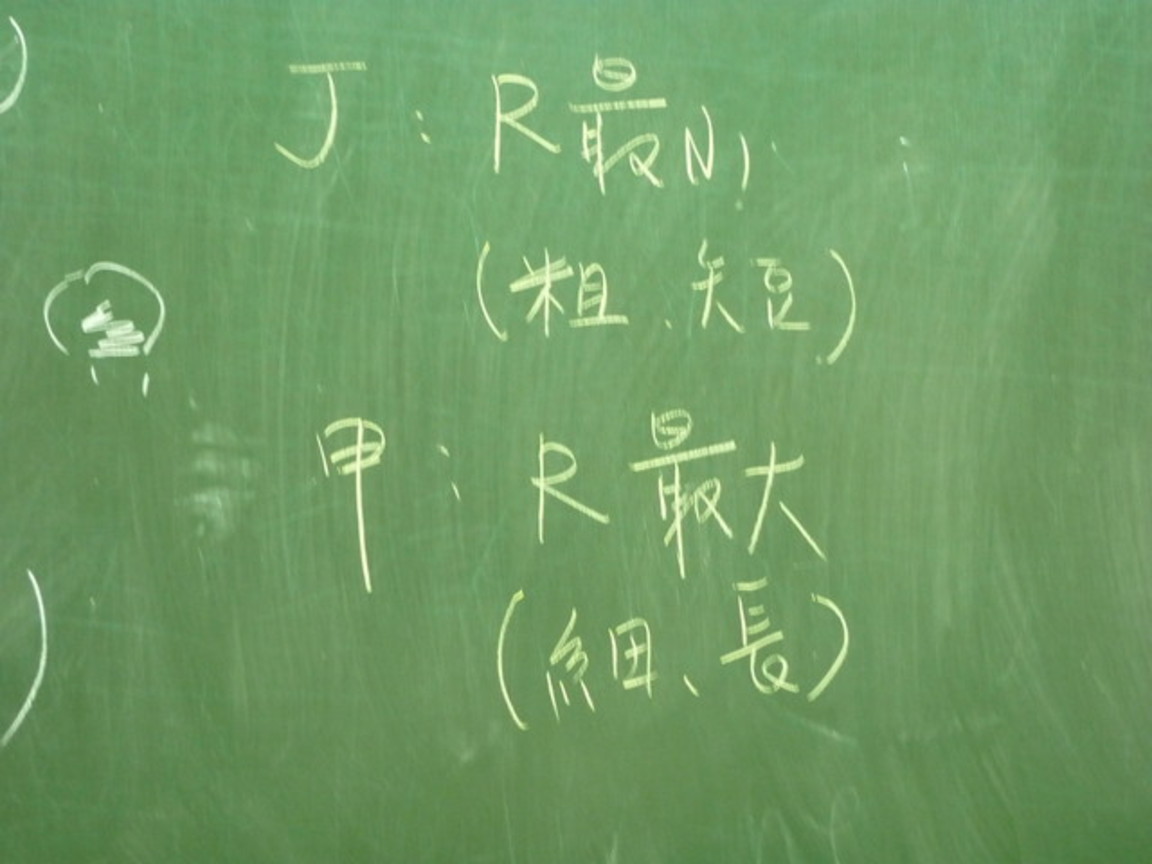 丁：R最小
(粗、短)
甲：R最大
(細、長)